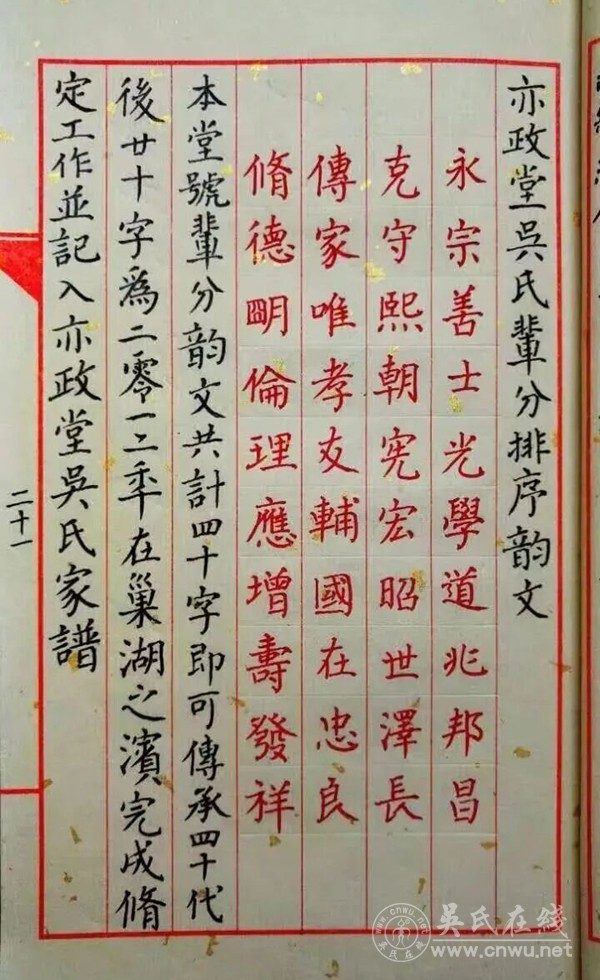 亦政堂吳氏輩分排序韵文
永宗善士光學道兆邦昌
克守熙朝宪宏昭世澤長
傳家唯孝友輔國在忠良
脩德朙倫理應增壽發祥
本堂號輩分韵文共計四十字即可傳承四十代
後廿十字爲二零一二年在巢湖之濱完成脩
定工作並記入亦政堂吳氏家譜
二十一
吳氏在线
www.cnwu.net